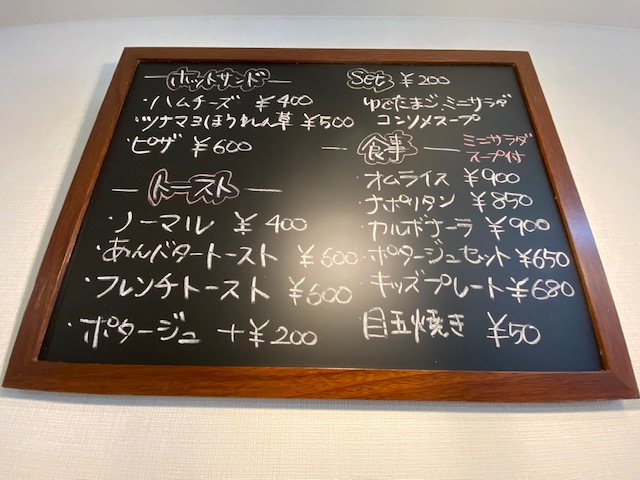 ホットサンド
・ハムチーズ ¥400
・ツナマヨほうれん草 ¥500
・ピザ ¥600
トースト
・ノーマル ¥400
・あんバタートースト ¥600
・フレンチトースト ¥600
・ポタージュ +¥200
Set ¥200
ゆでたまご、ミニサラダ
コンソメスープ
食事
ミニサラダ
スープ付
・オムライス ¥900
・ナポリタン ¥850
・カルボナーラ ¥900
・ポタージュセット ¥650
・キッズプレート ¥680
・目玉焼き ¥50